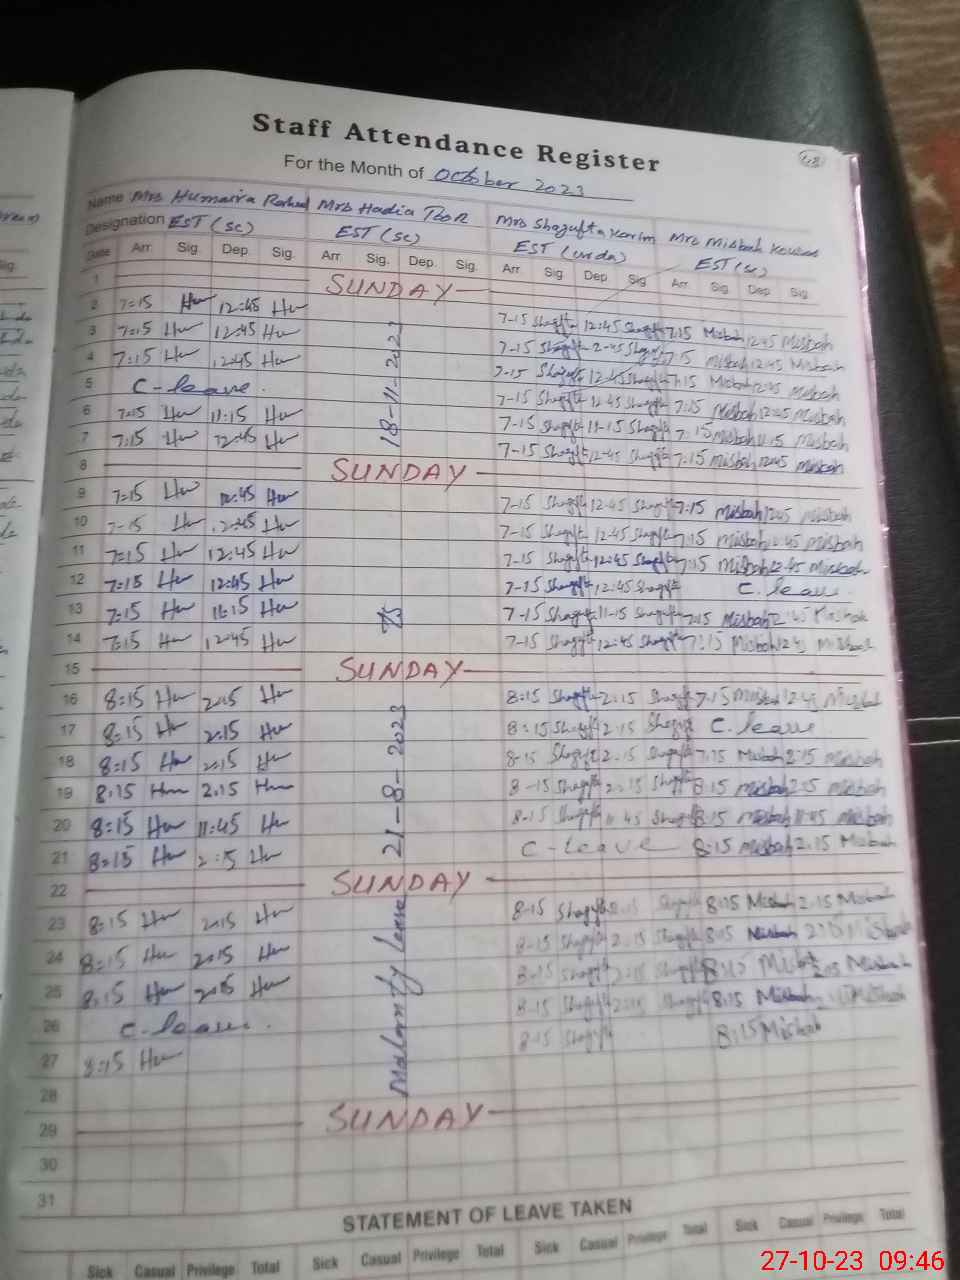 48
Staff Attendance Register
For the Month of October 2023
Name Mrs Humaira Mrs Hadia Mrs Shagufta Karim Mrs Misbah
Designation EST (sc) EST (sc) EST (urdu) EST (sc)
Date Arr. Sig. Dep. Sig. Arr. Sig. Dep. Sig. Arr. Sig Dep. Sig Arr. Sig Dep Sig.
1 SUNDAY
2 7=15 Hu 12:45 Hu 7-15 Shagufta 12:45 Shagufta 7:15 Misbah 12:45 Misbah
3 7=15 Hu 12:45 Hu 7-15 Shagufta 2-45 Shagufta 7:15 Misbah 12:45 Misbah
4 7=15 Hu 12:45 Hu 7-15 Shagufta 12:45 Shagufta 7:15 Misbah 12:45 Misbah
5 C-leave. 7-15 Shagufta 12:45 Shagufta 7:15 Misbah 12:45 Misbah
6 7=15 Hu 11:15 Hu 7-15 Shagufta 11-15 Shagufta 7:15 Misbah 11:15 Misbah
7 7:15 Hu 12:45 Hu 7-15 Shagufta 12-45 Shagufta 7:15 Misbah 12:45 Misbah
8 SUNDAY
9 7=15 Hu 12:45 Hu 7-15 Shagufta 12-45 Shagufta 7:15 Misbah 12:45 Misbah
10 7-15 Hu 12:45 Hu 7-15 Shagufta 12-45 Shagufta 7:15 Misbah 12:45 Misbah
11 7=15 Hu 12:45 Hu 7-15 Shagufta 12:45 Shagufta 7:15 Misbah 12:45 Misbah
12 7=15 Hu 12:45 Hu 7-15 Shagufta 12:45 Shagufta C. leave
13 7=15 Hu 11:15 Hu 7-15 Shagufta 11-15 Shagufta 7:15 Misbah Misbah
14 7:15 Hu 12:45 Hu 7-15 Shagufta 12:45 Shagufta 7:15 Misbah 12:45 Misbah
15 SUNDAY
16 8:15 Hu 2:15 Hu 8:15 Shagufta 2:15 Shagufta 7:15 Misbah 12:45 Misbah
17 8:15 Hu 2:15 Hu 8:15 Shagufta 2:15 Shagufta C. leave
18 8=15 Hu 2:15 Hu 8-15 Shagufta 2.15 Shagufta 7:15 Misbah 2:15 Misbah
19 8:15 Hu 2:15 Hu 8-15 Shagufta 2:15 Shagufta 8:15 Misbah 2:15 Misbah
20 8=15 Hu 11:45 Hu 8-15 Shagufta 11 45 Shagufta 8:15 Misbah 11:45 Misbah
21 8=15 Hu 2:15 Hu C-leave 8:15 Misbah 2:15 Misbah
22 SUNDAY
23 8:15 Hu 2:15 Hu 8-15 Shagufta Shagufta 8:15 Misbah 2:15 Misbah
24 8=15 Hu 2:15 Hu 8-15 Shagufta 2.15 Shagufta 8:15 Misbah 2:15 Misbah
25 8:15 Hu 2:15 Hu 8-15 Shagufta 2:15 Shagufta 8:15 Misbah 2:15 Misbah
26 C. leave. 8-15 Shagufta 2:15 Shagufta 8:15 Misbah Misbah
27 8:15 Hu 8-15 Shagufta 8:15 Misbah
28
29 SUNDAY
30
31
Malarnity leave 21-8-2023 18-11-2023
STATEMENT OF LEAVE TAKEN
Sick Casual Privilege Total Sick Casual Privilege Total Sick Casual Privilege Total Sick Casual Privilege Total
27-10-23 09:46